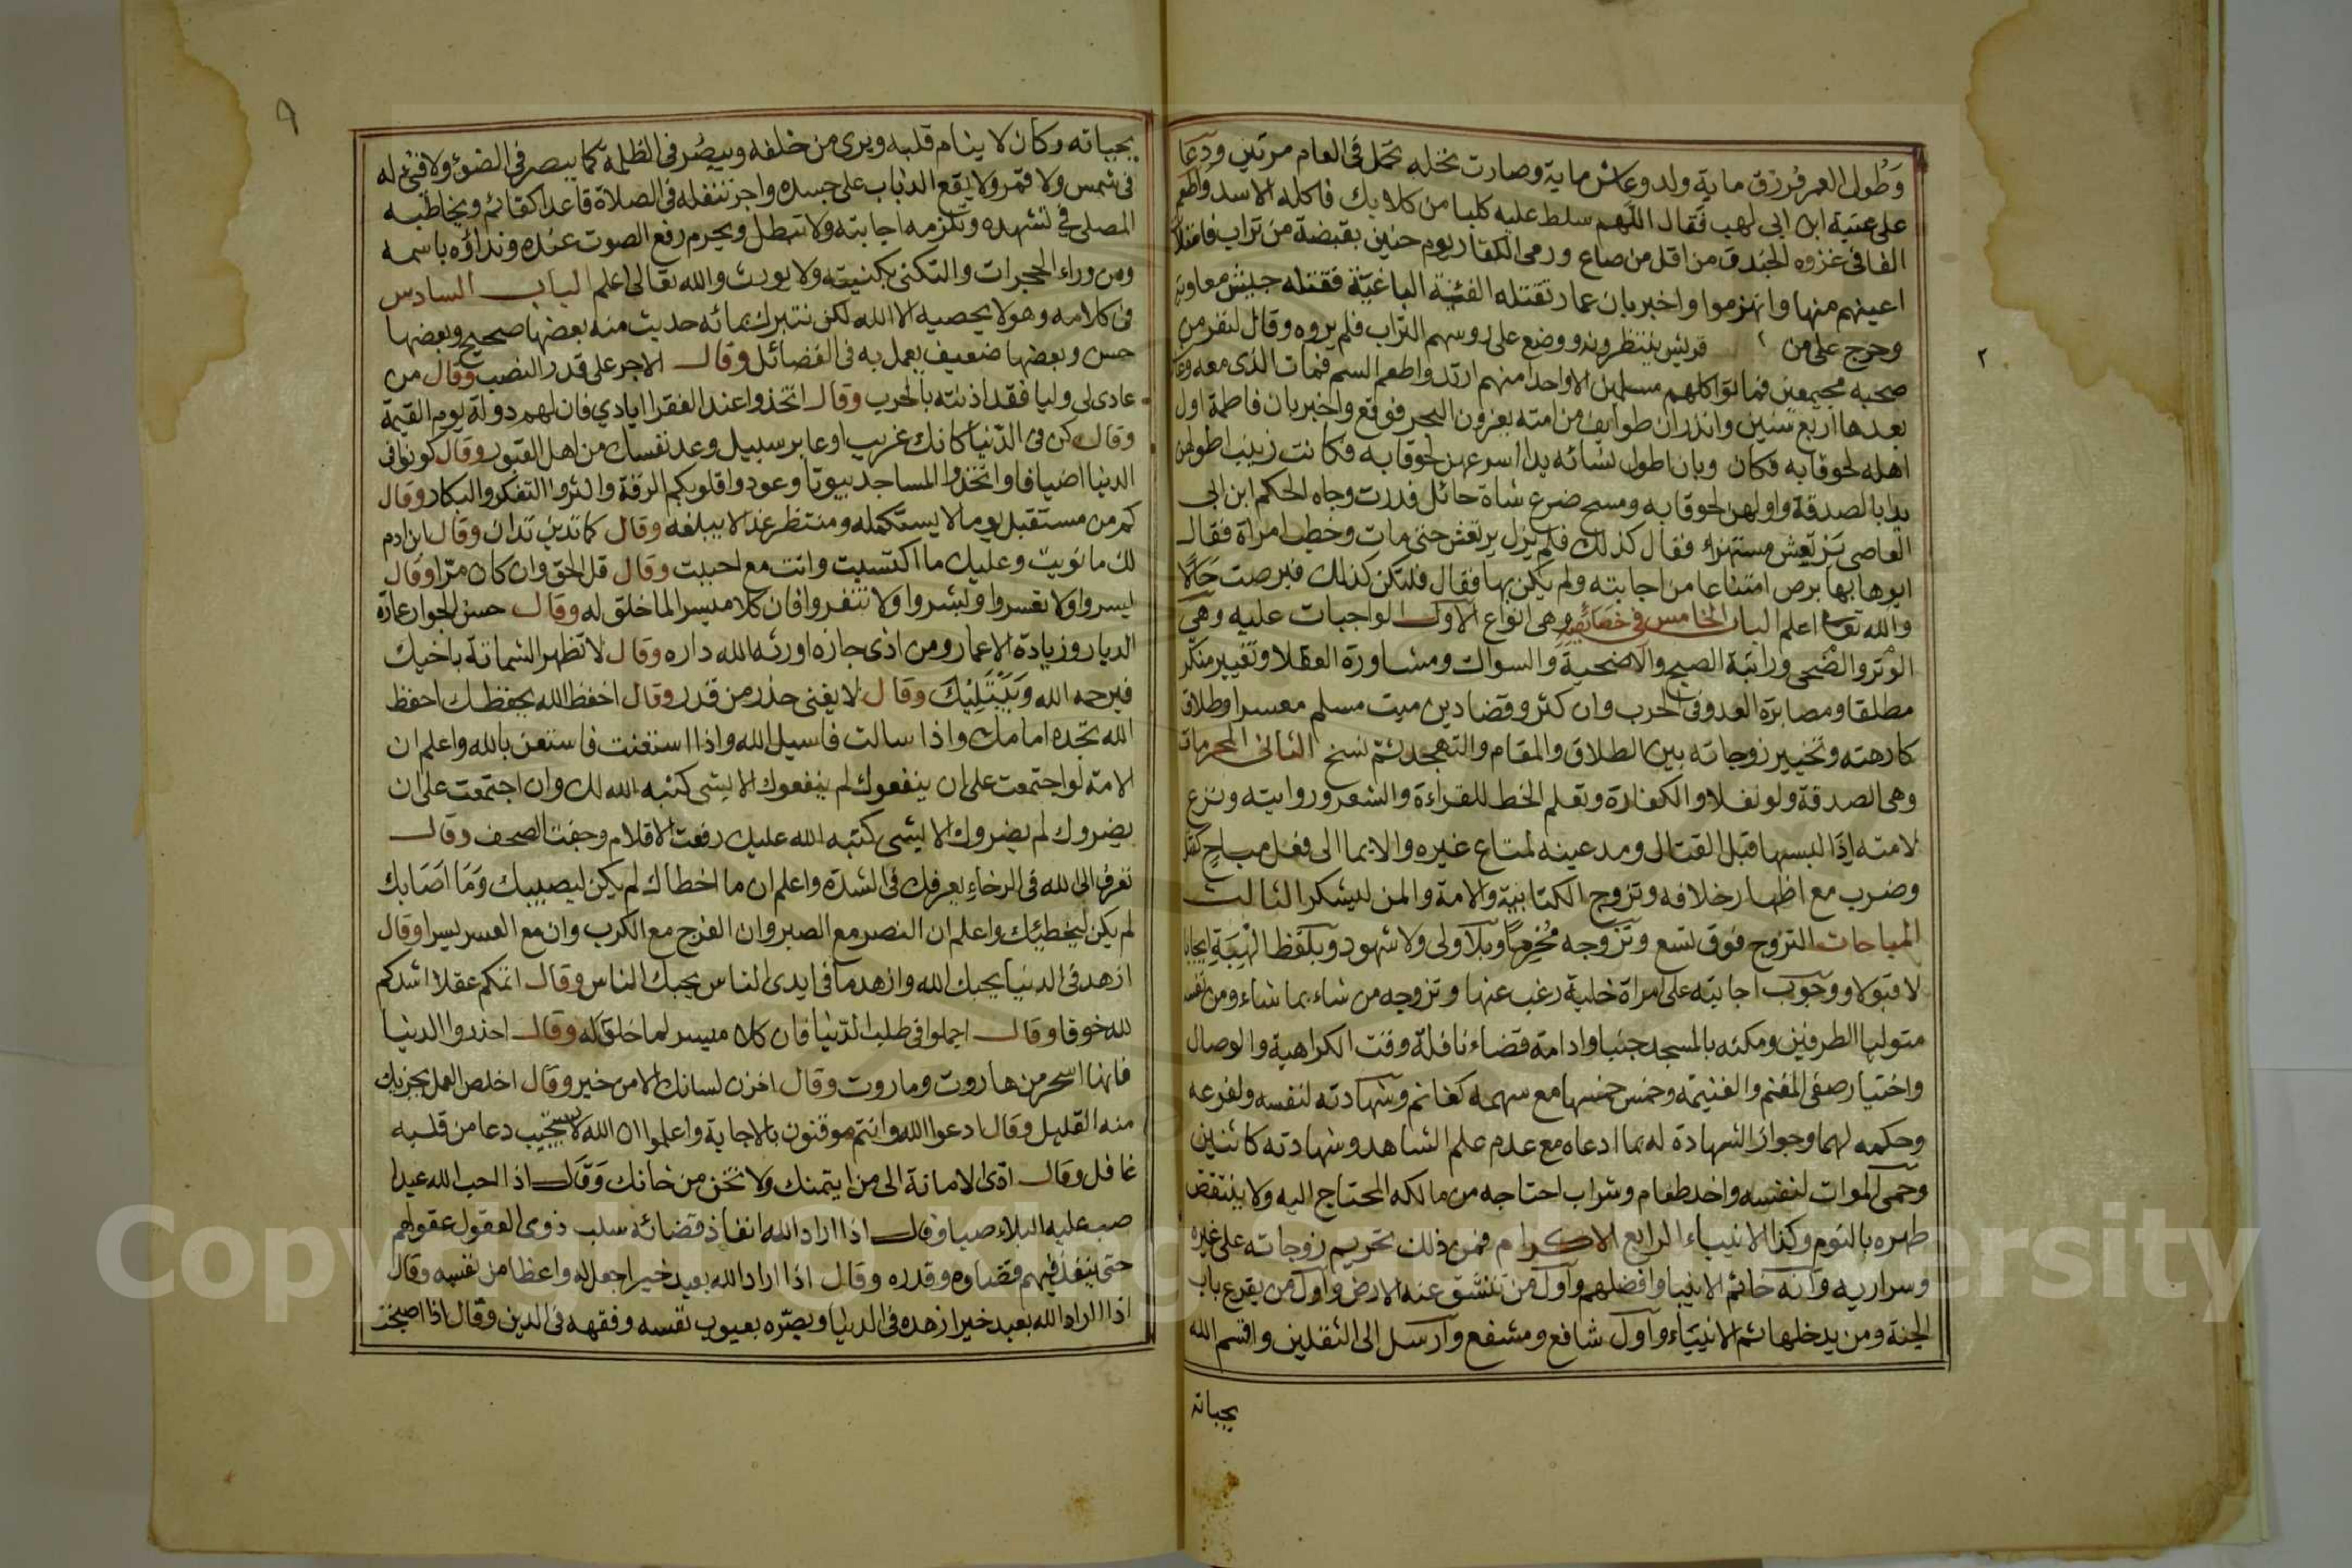 وطول العمر فرزق ماية ولد وعاش ماية وصارت نخله تحمل في العام مرتين ودعا
على عتبة ابن ابي لهب فقال اللهم سلط عليه كلبا من كلابك فاكله الاسد واطعم
الفا في غزوه الخندق من اقل من صاع ورمى الكفار يوم حنين بقبضة من تراب فامتلأ
اعينهم منها وانهزموا واخبر بان عمار تقتله الفئة الباغية فقتله جيش معاوية
وخرج على من ٢ قريش ينتظرونه ووضع على روسهم التراب فلم يروه وقال لنفر من
٢
صحبه مجتمعين فماتوا كلهم مسلمين الا واحدا منهم ارتد واطعم السم فمات الذى معه وعا
بعدها اربع سنين وانذر ان طوايف من امته يغزون البحر فوقع واخبر بان فاطمة اول
اهله لحوقا به فكان وبان اطول نسائه يدا اسرعهن لحوقا به فكانت زينب اطولهن
يدا بالصدقة واولهن لحوقا به ومسح ضرع شاة حائل فدرت وجاه الحكم ابن ابي
العاصي يرتعش مستهزء فقال كذلك فلم يزل يرتعش حتى مات وخطب امراة فقال
ابوها بها برص امتناعا من اجابته ولم يكن بها فقال فلتكن كذلك فبرصت حالا
والله تعا اعلم الباب الخامس في خصائصه وهى انواع الاول الواجبات عليه وهى
الوتر والضحى وراتبة الصبح والاضحية والسواك ومشاورة العقلا وتغيير منكر
مطلقا ومصابرة العدو فى الحرب وان كثر وقضا دين ميت مسلم معسرا وطلاق
كارهته وتخيير زوجاته بين الطلاق والمقام والتهجد ثم نسخ الثاني المحرمات
وهى الصدقة ولو نفلا والكفارة وتعلم الخط للقراءة والشعر وروايته ونزع
لامته اذا لبسها قبل القتال ومد عينه لمتاع غيره والايما الى فعل مباح كقتل
وضرب مع اظهار خلافه وتزوج الكتابية والامة والمن ليستكثر الثالث
المباحات التزوج فوق تسع وتزوجه محرما وبلا ولى ولا شهود وبلفظ الهبة ايجابا
لا قبولا ووجوب اجابته على امراة خلية رغب عنها وتزوجه من شاء بما شاء ومن نفسه
متوليا الطرفين ومكثه بالمسجد جنبا وادامة قضاء نافلة وقت الكراهية والوصال
واختيار صفى المغنم والغنيمة وخمس خمسها مع سهمه كغانم وشهادته لنفسه ولفرعه
وحكمه لهما وجواز الشهادة له بما ادعاه مع عدم علم الشاهد وشهادته كاثنين
وحمى الموات لنفسه واخذ طعام وشراب احتاجه من مالكه المحتاج اليه ولا ينتقض
طهره بالنوم وكذا الانبياء الرابع الاكرام فمن ذلك تحريم زوجاته على غيره
وسراريه وانه خاتم الانبيا وافضلهم واول من تنشق عنه الارض واول من يقرع باب
الجنة ومن يدخلها ثم الانبياء واول شافع ومشفع وارسل الى الثقلين واقسم الله
بحياته
٩
بحياته وكان لا ينام قلبه ويرى من خلفه ويبصر فى الظلمة كما يبصر فى الضوء ولا فئ له
فى شمس ولا قمر ولا يقع الذباب على جسده واجر تنفله فى الصلاة قاعدا كقائم ويخاطبه
المصلى فى تشهده وتلزمه اجابته ولا تبطل ويحرم رفع الصوت عنده ونداؤه باسمه
ومن وراء الحجرات والتكنى بكنيته ولا يورث والله تعالى اعلم الباب السادس
فى كلامه وهو لا يحصيه الا الله لكن نتبرك بمائه حديث منه بعضها صحيح وبعضها
حسن وبعضها ضعيف يعمل به فى الفضائل وقال الاجر على قدر النصب وقال من
عادى لى وليا فقد اذنته بالحرب وقال اتخذوا عند الفقرا ايادي فان لهم دولة يوم القيمة
وقال كن فى الدنيا كانك غريب او عابر سبيل وعد نفسك من اهل القبور وقال كونوا فى
الدنيا اضيافا واتخذوا المساجد بيوتا وعودوا قلوبكم الرقة واكثروا التفكر والبكا وقال
كم من مستقبل يوما لا يستكمله ومنتظر غدا لا يبلغه وقال كما تدين تدان وقال ابن ادم
لك ما نويت وعليك ما اكتسبت وانت مع احببت وقال قل الحق وان كان مرا وقال
يسروا ولا تعسروا وبشروا ولا تنفروا فان كلا ميسر لما خلق له وقال حسن الجوار عمارة
الديار وزيادة الاعمار ومن اذى جاره اورثه الله داره وقال لا تظهر الشماتة باخيك
فيرحمه الله ويبتليك وقال لا يغنى حذر من قدر وقال احفظ الله يحفظك احفظ
الله تجده امامك واذا سالت فاسيل الله واذا استعنت فاستعن بالله واعلم ان
الامة لو اجتمعت على ان ينفعوك لم ينفعوك الا بشى كتبه الله لك وان اجتمعت على ان
يضروك لم يضروك الا بشى كتبه الله عليك رفعت الاقلام وجفت الصحف وقال
تعرف الى الله فى الرخاء يعرفك فى الشدة واعلم ان ما اخطاك لم يكن ليصيبك وما اصابك
لم يكن ليخطئك واعلم ان النصر مع الصبر وان الفرج مع الكرب وان مع العسر يسرا وقال
ازهد فى الدنيا يحبك الله وازهد ما فى ايدى الناس يحبك الناس وقال اتمكم عقلا اشدكم
لله خوفا وقال اجملوا فى طلب الدنيا فان كلا ميسر لما خلق له وقال احذروا الدنيا
فانها اسحر من هاروت وماروت وقال اخزن لسانك الا من خير وقال اخلص العمل يجزيك
منه القليل وقال ادعوا الله وانتم موقنون بالاجابة واعلموا ان الله لا يستجيب دعا من قلبه
غافل وقال ادى الامانة الى من ايتمنك ولا تخن من خانك وقال اذا احب الله عبدا
صب عليه البلاء صبا وقال اذا اراد الله انفاذ قضائه سلب ذوى العقول عقولهم
حتى ينفذ فيهم قضاوه وقدره وقال اذا اراد الله بعبد خيرا جعل له واعظا من نفسه وقال
اذا اراد الله بعبد خيرا زهده فى الدنيا وبصره بعيوب نفسه وفقهه فى الدين وقال اذا اصبحت